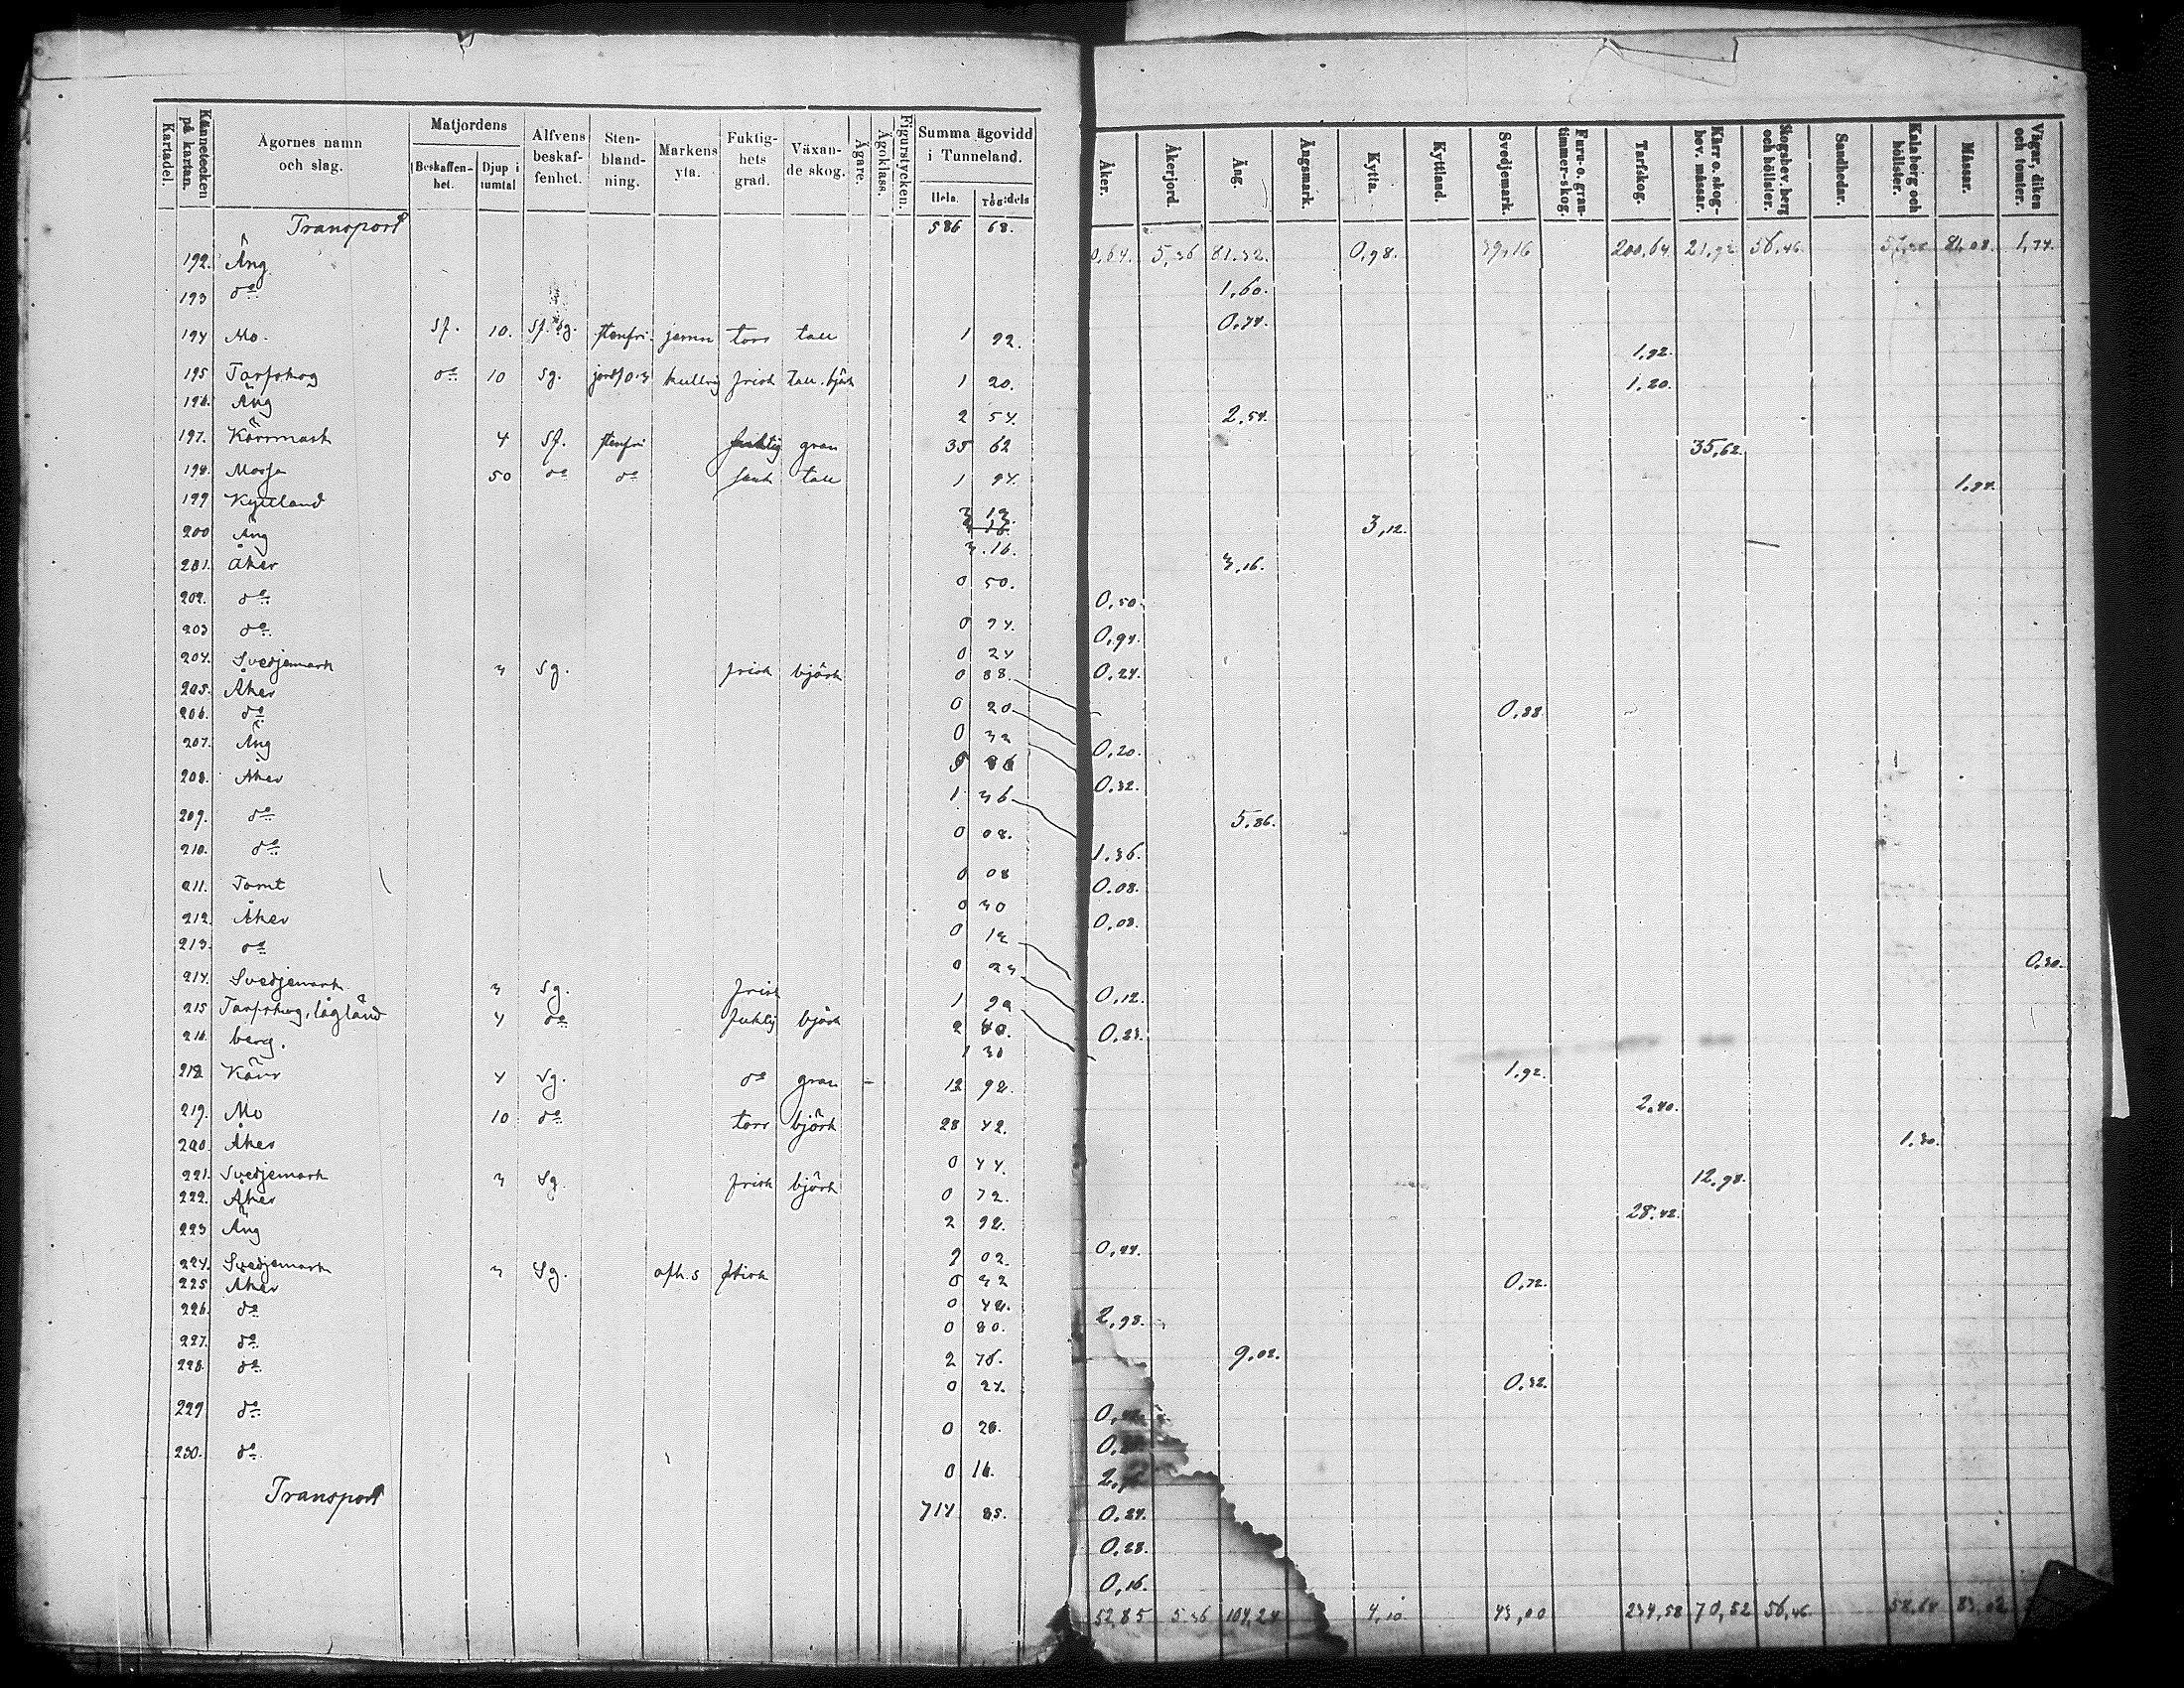 Kartadel. Kännetecken på kartan. Ägornes namn och slag. Matjordens Beskaffenhet. Djup i tumtal Alfvens beskaffenhet. Stenblandning. Markens yta. Fuktighets grad. Växande skog. Ägare. Ägoklass. Figurstycken. Summa ägovidd i Tunneland. Hela. 100:dels
Åker. Åkerjord. Äng. Ängsmark. Kytta. Kyttland. Svedjemark. Furu- o. grantimmer-skog. Tarfskog. Kärr o. skogbev. måssar. Skogsbev. berg och höllster. Sandhedar. Kala berg och höllster. Måssar. Vägar, diken och tomter.
Transport 586 68.
192. Äng
193 do
194 Mo. sf. 10. stenfri. jemn torr tall 1 92.
195 Tarfskog do 10 sg. kullrig frisk tall. björk 1 20.
196. Äng 2 54.
197. Kärrmark 4 sf. stenfri fuktig gran 35 62
198. Mossa 50 do do sank tall 1 94.
199 Kyttland 3 12.
200 Äng 3.16.
201. Åker 0 50.
202. do 0 94.
203 do. 0 24
204. Svedjemark 3 sg. frisk björk 0 88.
205. Åker 0 20
206. do 0 32
207. Äng 5 86
208. Åker 1 36
209. do 0 08.
210. do 0 08
211. Tomt 0 30
212. Åker 0 12
213. do 0 23
214. Svedjemark 3 sg. frisk 1 92
215 Tarfskog, lågländ 4 do fuktig björk 2 40.
216 berg. 1 30
218 Kärr 4 sg. do gran 12 98.
219. Mo 10 do torr björk 28 42.
220. Åker 0 44.
221. Svedjemark 3 sg. frisk björk 0 72.
222. Åker 2 98.
223 Äng 9 02.
224. Svedjemark 3 sg. frisk 0 32
225 Åker 0 48.
226. do 0 80.
227. do 2 76.
228. do 0 24.
229 do 0 28.
230. do 0 16.
Transport 714 85.
0,64. 5,36 81.32. 0,98. 39,16 200,64. 21,92 56,46. 81,08. 1,74.
1,60.
0,74.
1,92.
1,20.
2,54.
35,62.
1,94.
3,12.
3,16.
0,50.
0,94.
0,24.
0,88.
0,20.
0,32.
5,86.
1,36.
0,08.
0,08.
0,30.
0,12.
0,23.
1,92.
2,40.
1,30.
12,98.
28,42.
0,44.
0,72.
2,98.
9,02.
0,32.
0,
0,
2,
0,24.
0,28.
0,16.
52,85 5,36 104,24 4,10 43,00 234,58 70,52 56,46 58,64 83,02